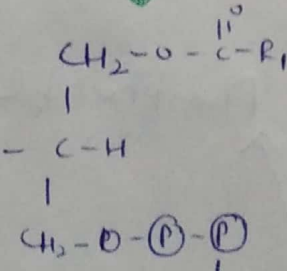 O
||
CH₂-O-C-R₁
|
- C-H
|
CH₂-O-Ⓟ-Ⓟ
|